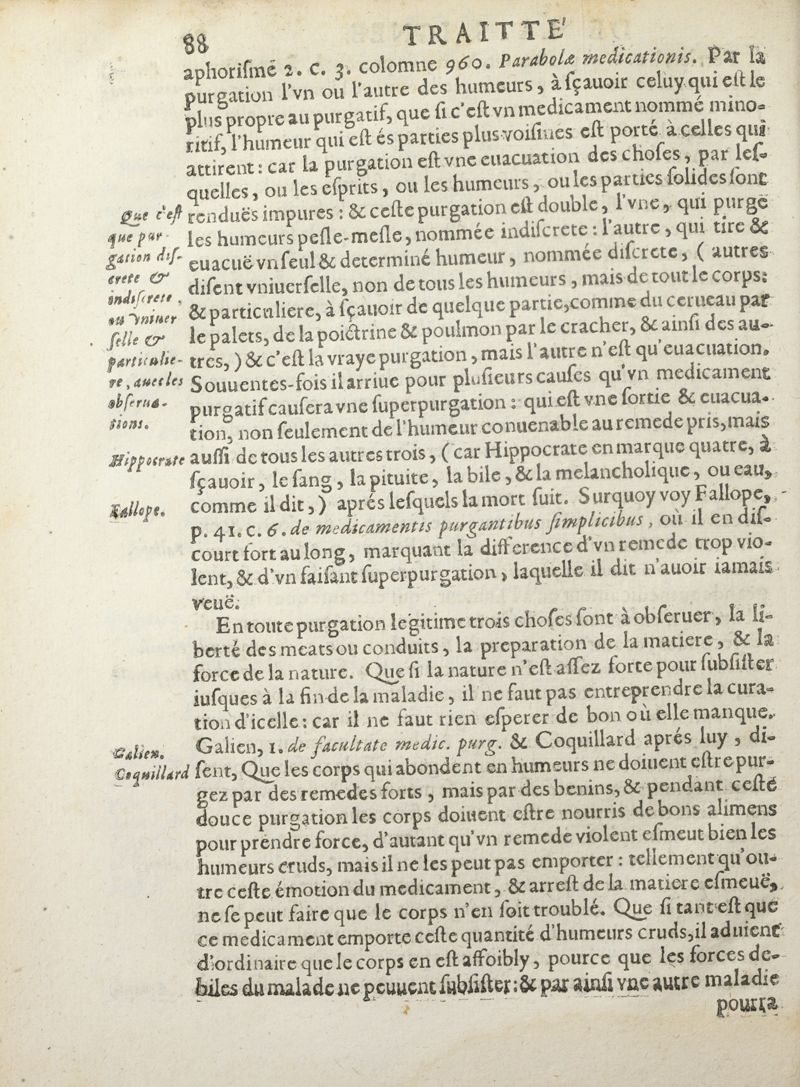 88
TRAITTE'
aphorisme 2. c. 3. colomne 960. Parabolæ medicationis. Par la
purgation l'vn ou l'autre des humeurs, à sçauoir celuy qui est le
plus propre au purgatif, que si c'est vn medicament nommé mino-
ritif, l'humeur qui est és parties plus voisines est porté à celles qui
attirent: car la purgation est vne euacuation des choses, par les-
quelles, ou les esprits, ou les humeurs, ou les parties solides sont
renduës impures: & ceste purgation est double, l'vne, qui purge
les humeurs pesle-mesle, nommée indiscrete: l'autre, qui tire &
euacuë vn seul & determiné humeur, nommée discrete, ( autres
disent vniuerselle, non de tous les humeurs, mais de tout le corps;
& particuliere, à sçauoir de quelque partie, comme du cerueau par
le palets, de la poictrine & poulmon par le cracher, & ainsi des au-
tres, ) & c'est la vraye purgation, mais l'autre n'est qu'euacuation.
Souuentes-fois il arriue pour plusieurs causes qu'vn medicament
purgatif causera vne superpurgation: qui est vne sortie & euacua-
tion, non seulement de l'humeur conuenable au remede pris, mais
aussi de tous les autres trois, ( car Hippocrate en marque quatre, à
sçauoir, le sang, la pituite, la bile, & la melancholique, ou eau,
comme il dit, ) aprés lesquels la mort suit. Surquoy voy Fallope,
p. 41. c. 6. de medicamentis purgantibus simplicibus, où il en dis-
court fort au long, marquant la difference d'vn remede trop vio-
lent, & d'vn faisant superpurgation, laquelle il dit n'auoir iamais
veuë.
En toute purgation legitime trois choses sont à obseruer, la li-
berté des meats ou conduits, la preparation de la matiere, & la
force de la nature. Que si la nature n'est assez forte pour subsister
iusques à la fin de la maladie, il ne faut pas entreprendre la cura-
tion d'icelle: car il ne faut rien esperer de bon où elle manque.
Galien, 1. de facultate medic. purg. & Coquillard aprés luy, di-
sent, Que les corps qui abondent en humeurs ne doiuent estre pur-
gez par des remedes forts, mais par des benins, & pendant ceste
douce purgation les corps doiuent estre nourris de bons alimens
pour prendre force, d'autant qu'vn remede violent esmeut bien les
humeurs cruds, mais il ne les peut pas emporter: tellement qu'ou-
tre ceste émotion du medicament, & arrest de la matiere esmeuë,
ne se peut faire que le corps n'en soit troublé. Que si tant est que
ce medicament emporte ceste quantité d'humeurs cruds, il aduient
d'ordinaire que le corps en est affoibly, pource que les forces de-
biles du malade ne peuuent subsister: & par ainsi vne autre maladie
pourra
Que c'est
que pur-
gation dis-
crete &
indiscrete,
ou vniuer
selle &
particulie-
re, auec les
obserua-
tions.
Hippocrate
Fallope.
Galien.
Coquillard